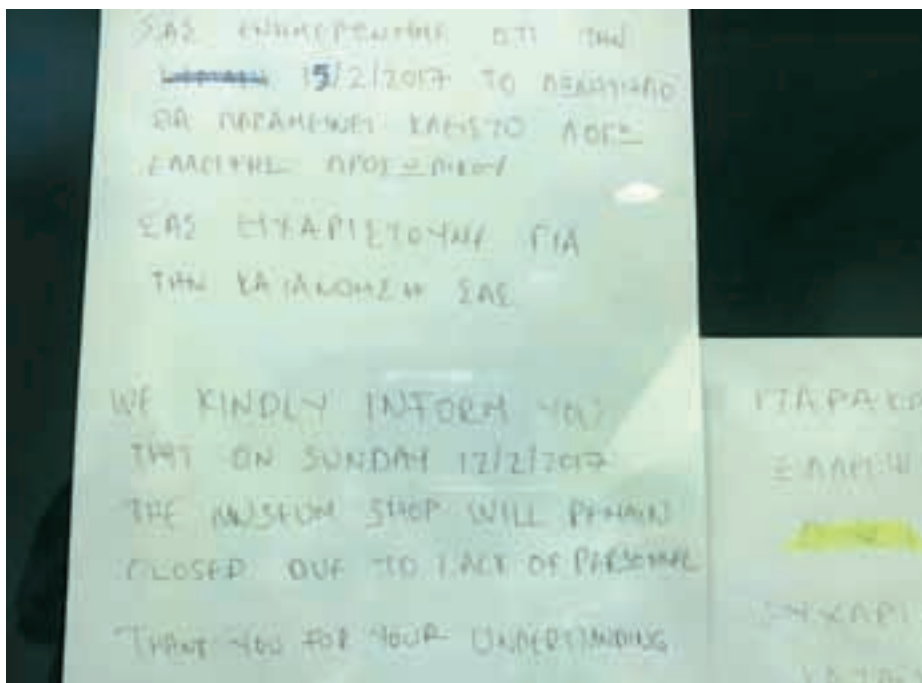 ΣΑΣ ΕΝΗΜΕΡΩΝΟΥΜΕ ΟΤΙ ΤΗΝ
15/2/2017 ΤΟ ΠΩΛΗΤΗΡΙΟ
ΘΑ ΠΑΡΑΜΕΙΝΕΙ ΚΛΕΙΣΤΟ ΛΟΓΩ
ΕΛΛΕΙΨΗΣ ΠΡΟΣΩΠΙΚΟΥ
ΣΑΣ ΕΥΧΑΡΙΣΤΟΥΜΕ ΓΙΑ
ΤΗΝ ΚΑΤΑΝΟΗΣΗ ΣΑΣ
WE KINDLY INFORM YOU
THAT ON SUNDAY 12/2/2017
THE MUSEUM SHOP WILL REMAIN
CLOSED DUE TO LACK OF PERSONNEL
THANK YOU FOR YOUR UNDERSTANDING
ΠΑΡΑΚΑ
ΕΛΛΕΙΨ